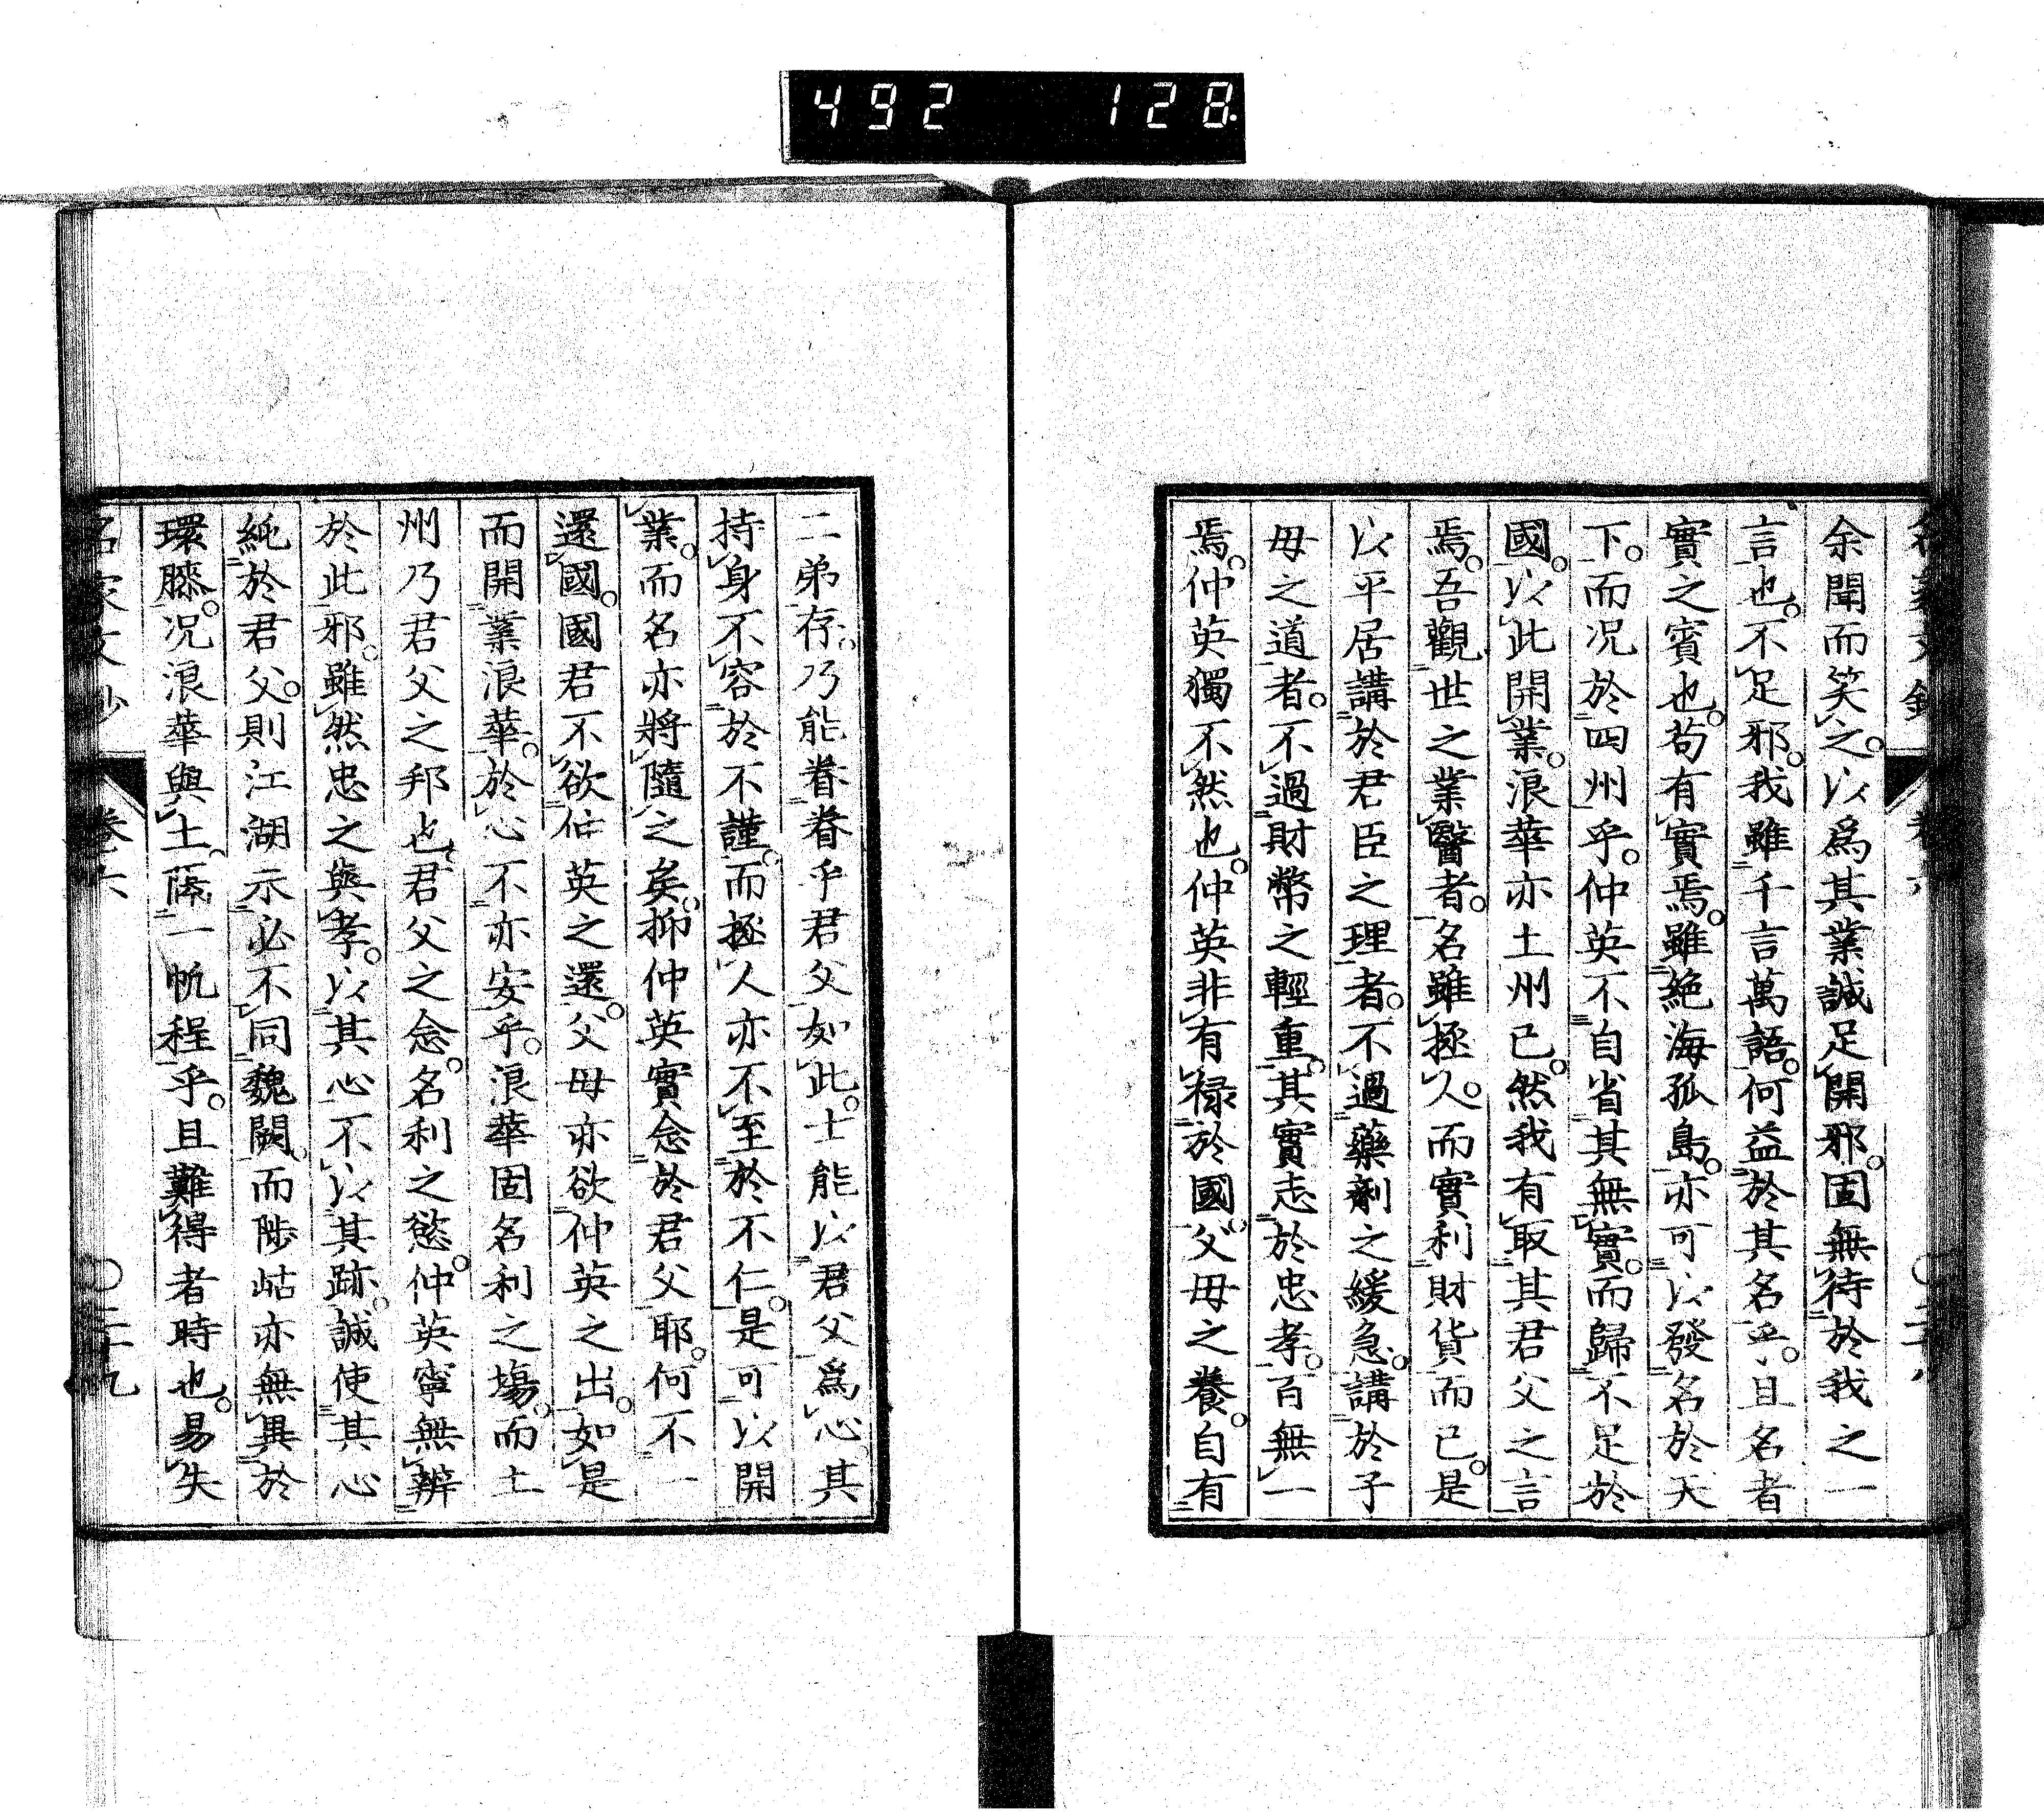 492 128
余聞而笑之。以爲其業誠足開邪。固無待於我之一
言也。不足邪。我雖千言萬語。何益於其名乎。且名者
實之賓也。苟有實焉。雖絶海孤島。亦可以發名於天
下。而况於四州乎。仲英不自省其無實。而歸不足於
國。以此開業。浪華亦土州已。然我有取其君父之言
焉。吾觀世之業醫者。名雖拯人。而實利財貨而已。是
以平居講於君臣之理者。不過藥劑之緩急。講於子
母之道者。不過財幣之輕重。其實志於忠孝。百無一
焉。仲英獨不然也。仲英非有禄於國。父母之養。自有
二弟存。乃能眷眷乎君父如此。士能以君父爲心。其
持身不容於不謹。而拯人亦不至於不仁。是可以開
業。而名亦將隨之矣。抑仲英實念於君父耶。何不一
還國。國君不欲仲英之還。父母亦欲仲英之出。如是
而開業浪華。於心不亦安乎。浪華固名利之塲。而土
州乃君父之邦也。君父之念。名利之慾。仲英寧無辨
於此邪。雖然忠之與孝。以其心不以其跡。誠使其心
純於君父。則江湖示必不同魏闕。而陟岵亦無異於
環膝。况浪華與土。隔一帆程乎。且難得者時也。易失
名家文鈔 卷六 〇二十九